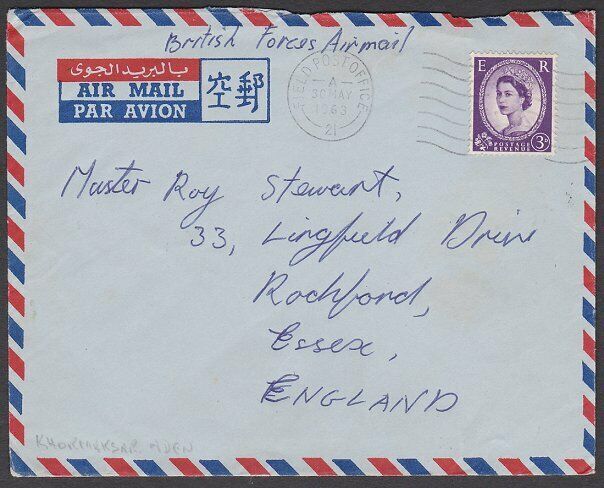 British Forces Airmail
بالبريد الجوى
AIR MAIL
PAR AVION
空郵
FIELD POST OFFICE
A
30 MAY
1963
21
E R
3D
POSTAGE
REVENUE
Master Roy Stewart,
33, Lingfield Drive
Rochford,
Essex,
ENGLAND
KHORMAKSAR ADEN